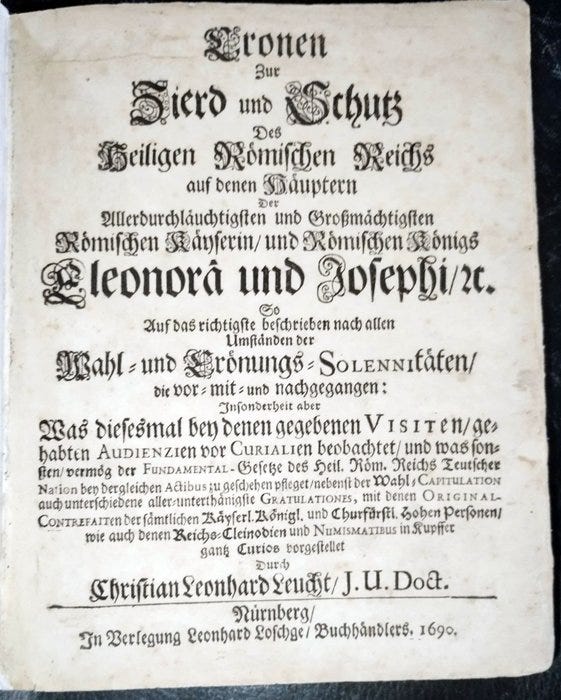 Cronen
Zur
Zierd und Schutz
Des
Heiligen Römischen Reichs
auf denen Häuptern
Der
Allerdurchläuchtigsten und Großmächtigsten
Römischen Käyserin/ und Römischen Königs
Eleonorâ und Josephi/ ꝛc.
So
Auf das richtigste beschrieben nach allen
Umständen der
Wahl- und Crönungs-SOLENNItäten/
die vor- mit- und nachgegangen:
Insonderheit aber
Was diesesmal bey denen gegebenen VISITen/ ge-
habten AUDIENZien vor CURIALien beobachtet/ und was son-
sten/ vermög der FUNDAMENTAL-Gesetze des Heil. Röm. Reichs Teutscher
Nation bey dergleichen Actibus zu geschehen pfleget/ nebenst der Wahl-CAPITULATION
auch unterschiedene aller-unterthänigste GRATULATIONES, mit denen ORIGINAL-
CONTREFAITen der sämtlichen Käyserl. Königl. und Churfürstl. Hohen Personen/
wie auch denen Reichs-Cleinodien und NUMISMATIBUS in Kupffer
gantz Curios vorgestellet
Durch
Christian Leonhard Leucht/ J. U. Doct.
Nürnberg/
In Verlegung Leonhard Loschge/ Buchhändlers. 1690.